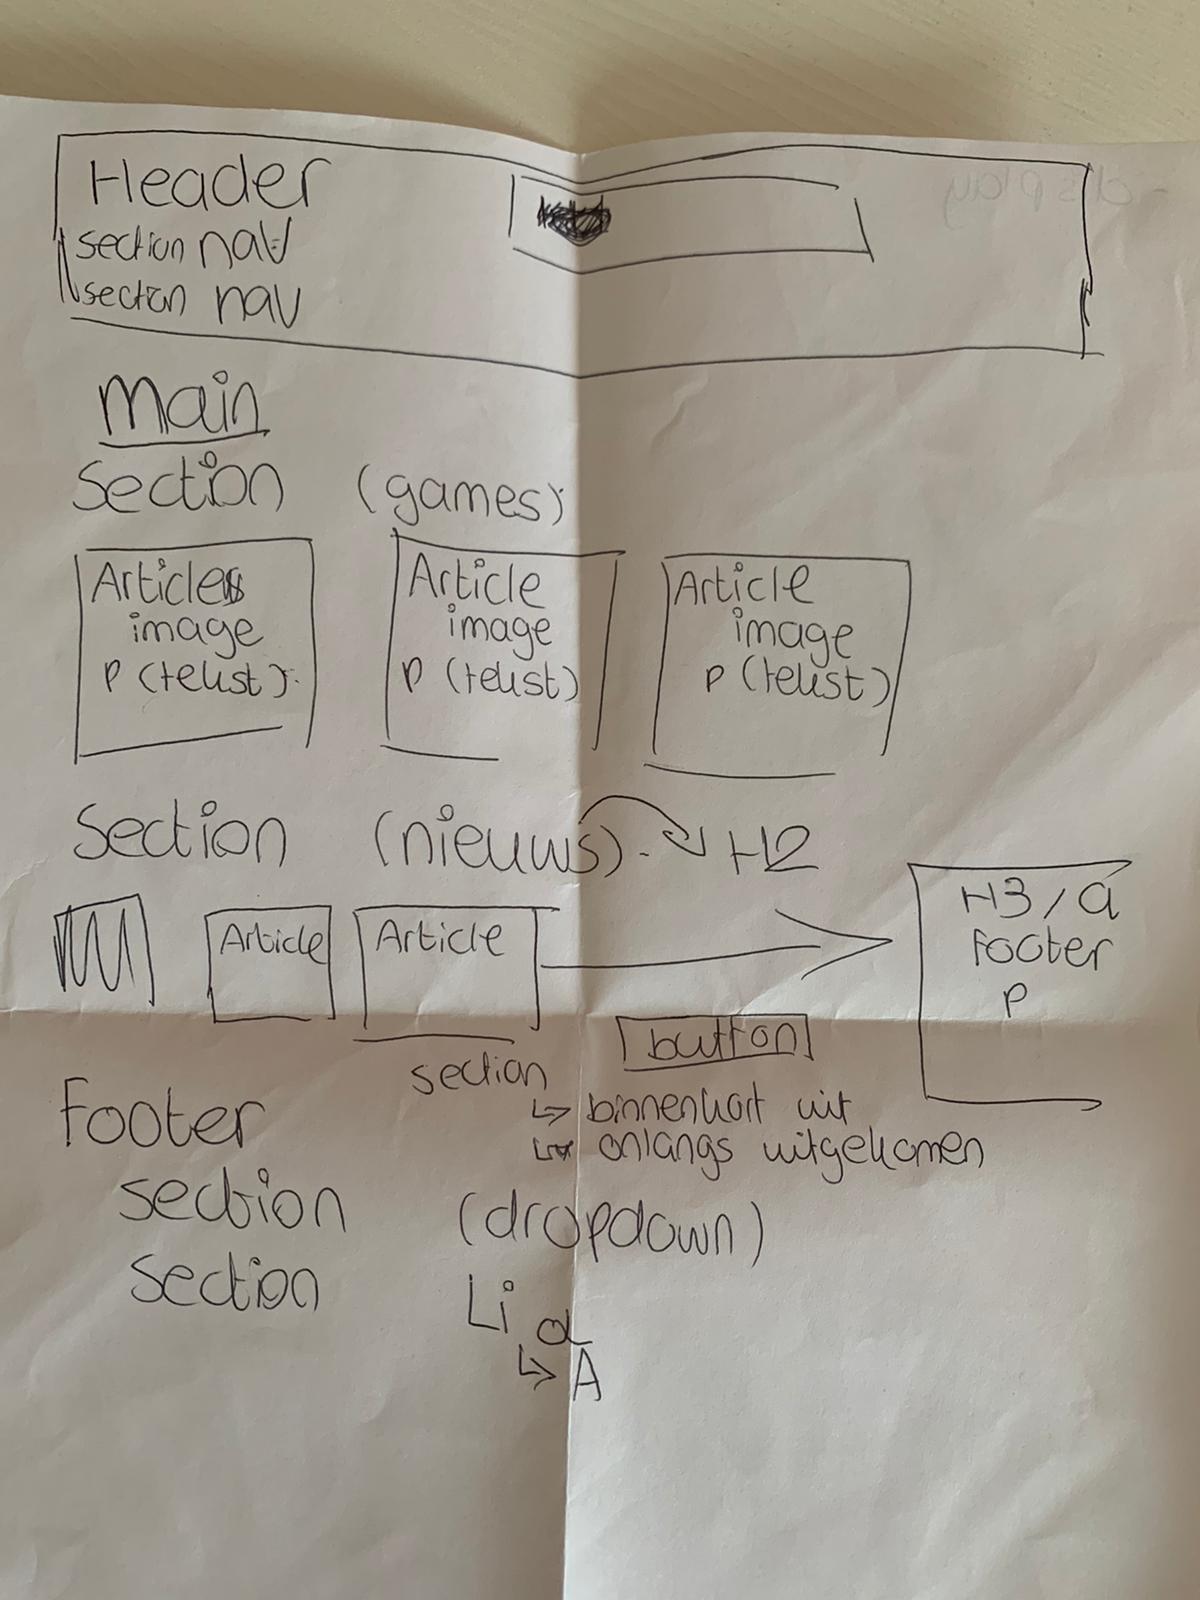 Header
section nav
section nav
main
section (games)
Article
image
p (tekst)
Article
image
p (tekst)
Article
image
p (tekst)
section (nieuws) H2
Article
Article
H3 / a
footer
p
button
section
binnenkort uit
onlangs uitgekomen
Footer
section (dropdown)
section Li
A
display